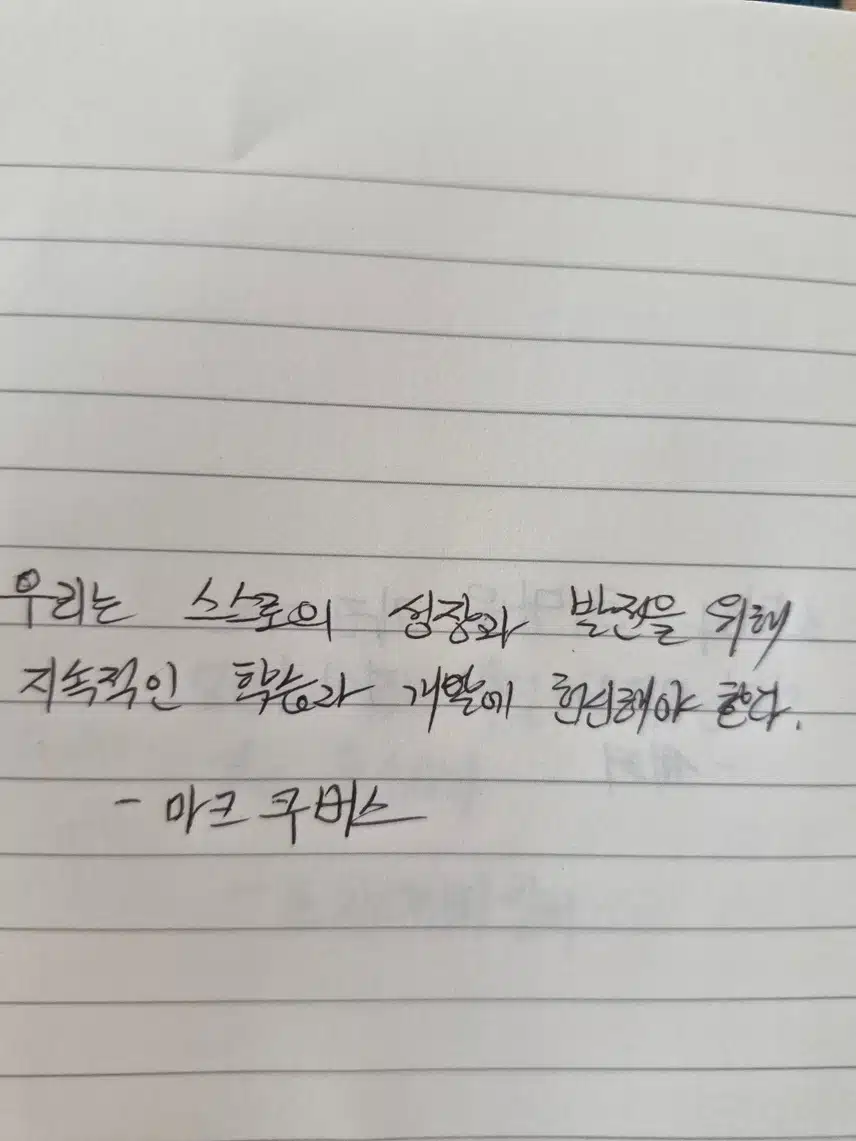 우리는 스스로의 성장과 발전을 위해
지속적인 학습과 개발에 헌신해야 한다.
- 마크 쿠버스